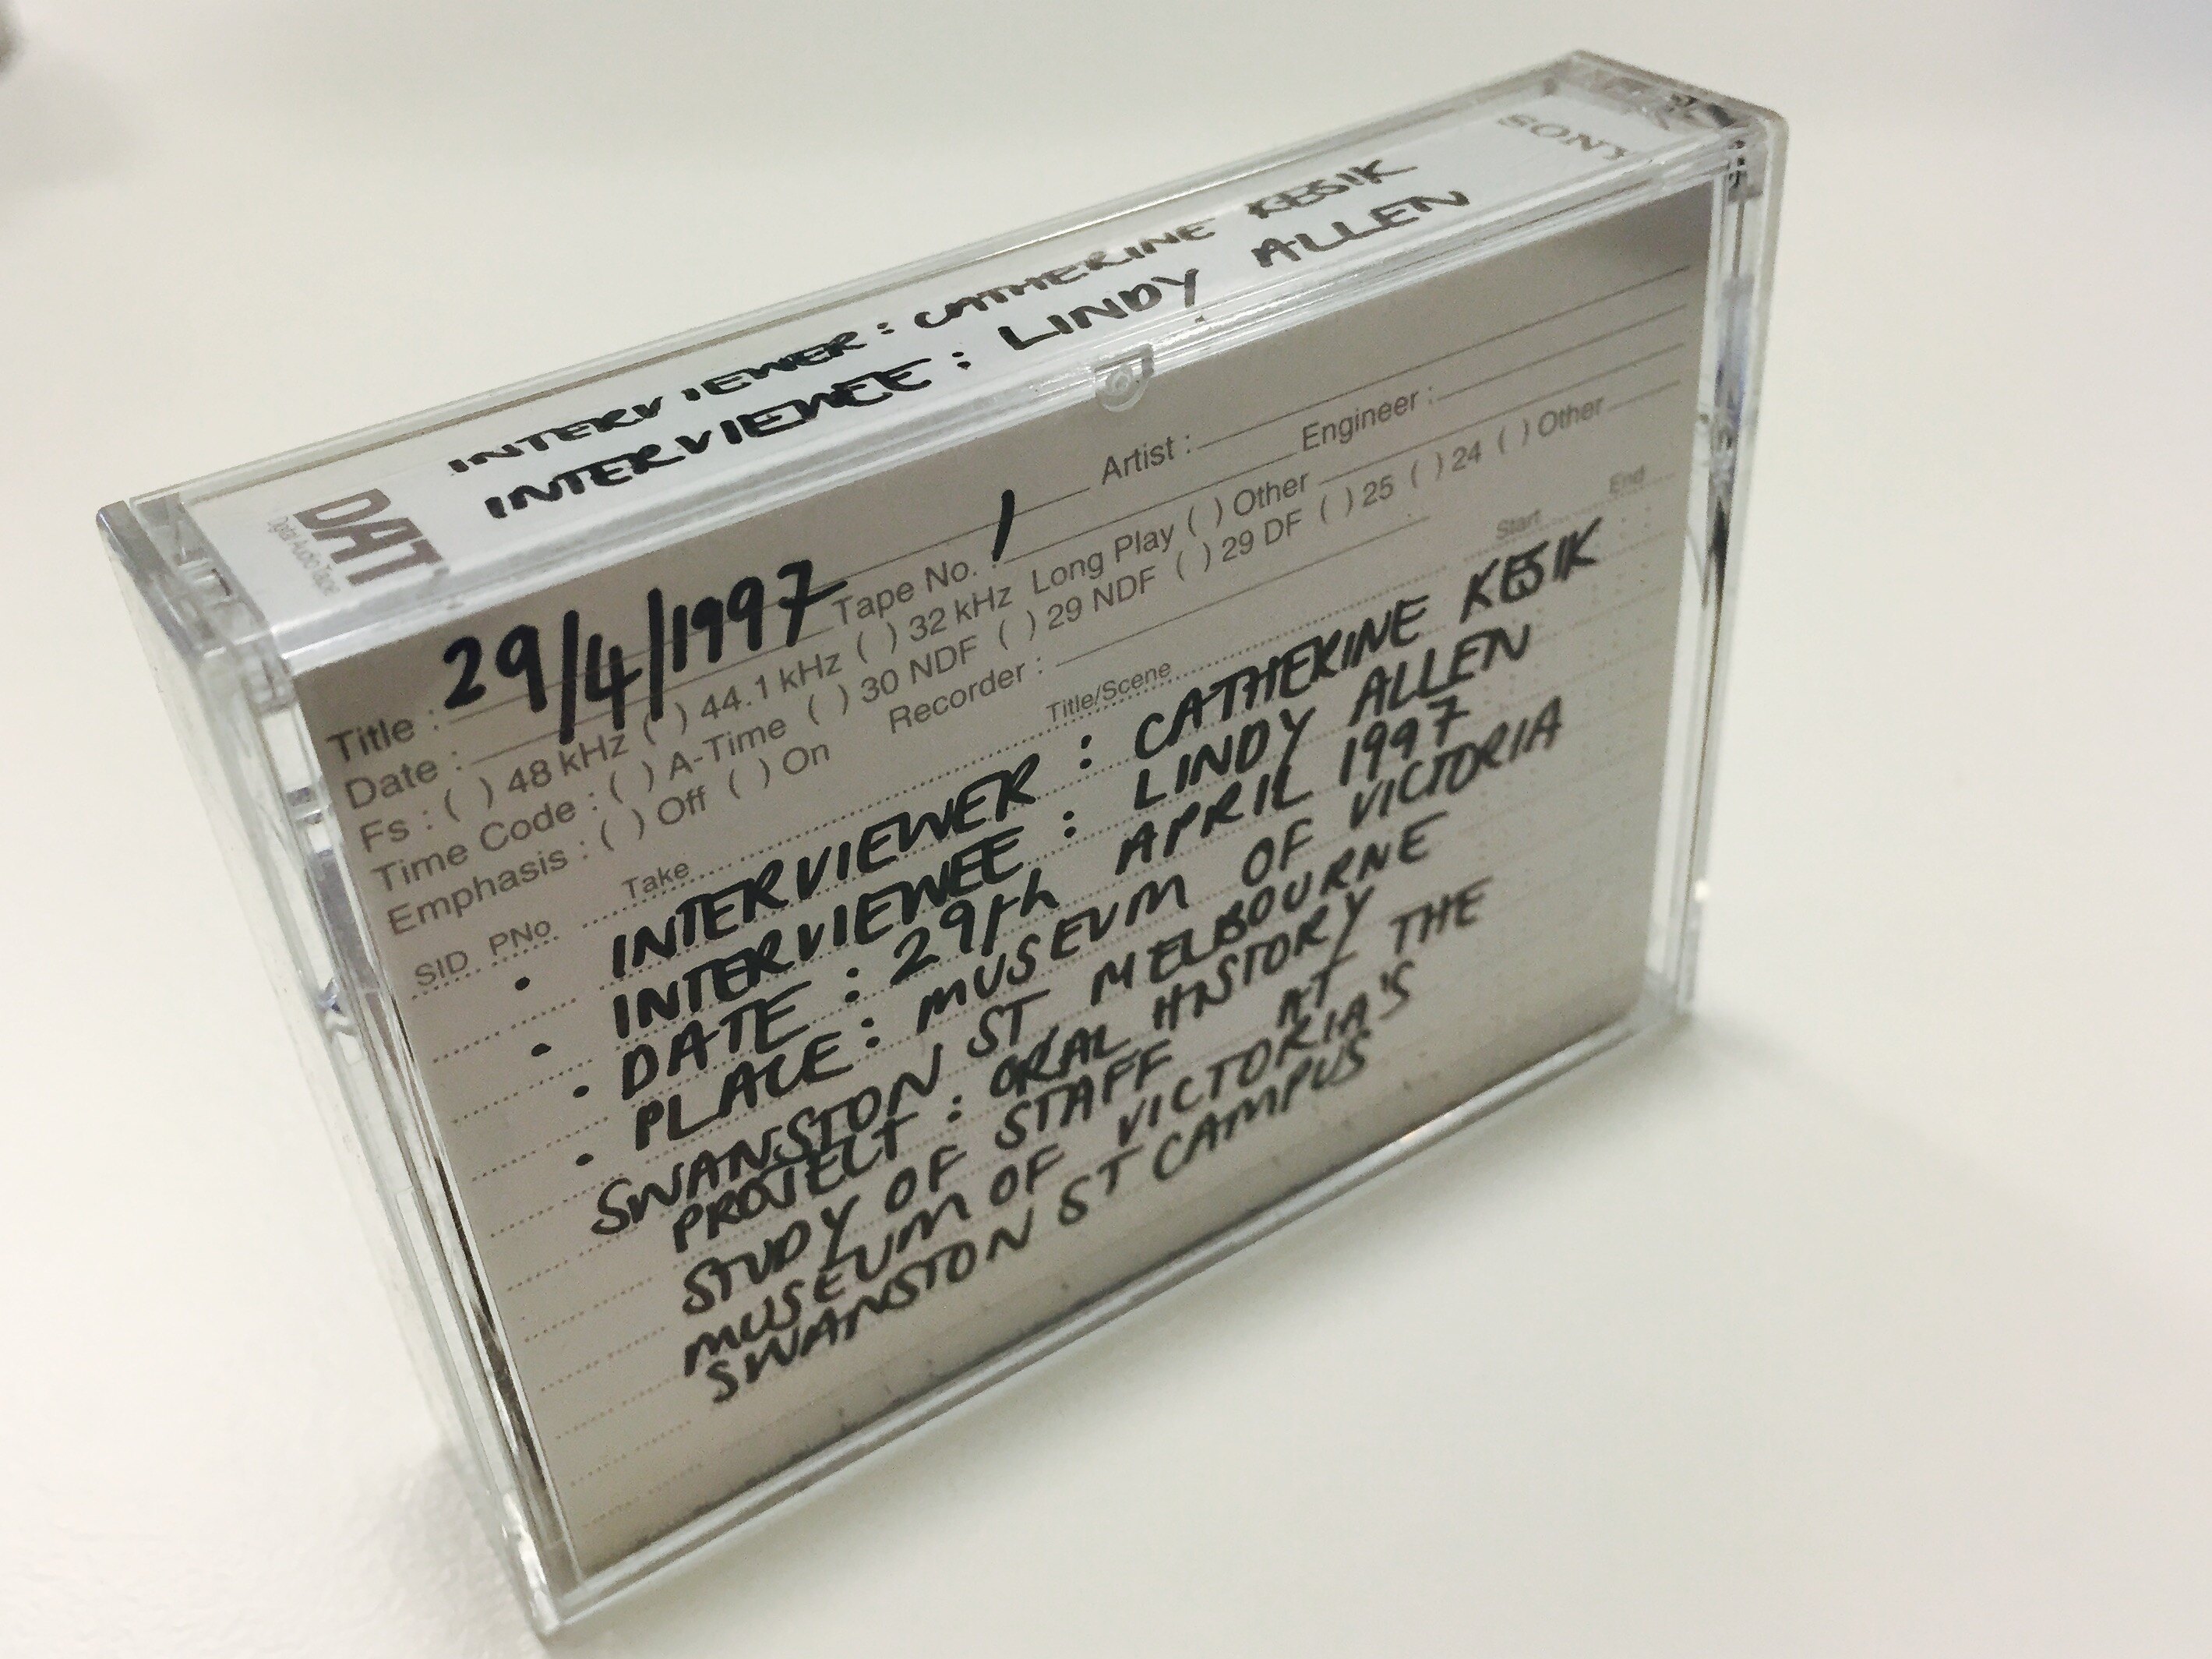 SONY
INTERVIEWER : CATHERINE KESIK
INTERVIEWEE : LINDY ALLEN
DAT
Digital Audio Tape
Title : 29/4/1997 Artist :
Date : Tape No. : 1 Engineer :
Fs : ( ) 48 kHz ( ) 44.1 kHz ( ) 32 kHz Long Play ( ) Other
Time Code : ( ) A-Time ( ) 30 NDF ( ) 29 NDF ( ) 29 DF ( ) 25 ( ) 24 ( ) Other
Emphasis : ( ) Off ( ) On Recorder :
SID PNo Take Title/Scene Start End
• INTERVIEWER : CATHERINE KESIK
• INTERVIEWEE : LINDY ALLEN
• DATE : 29th APRIL 1997
• PLACE : MUSEUM OF VICTORIA
SWANSTON ST MELBOURNE
PROJECT : ORAL HISTORY
STUDY OF STAFF AT THE
MUSEUM OF VICTORIA'S
SWANSTON ST CAMPUS